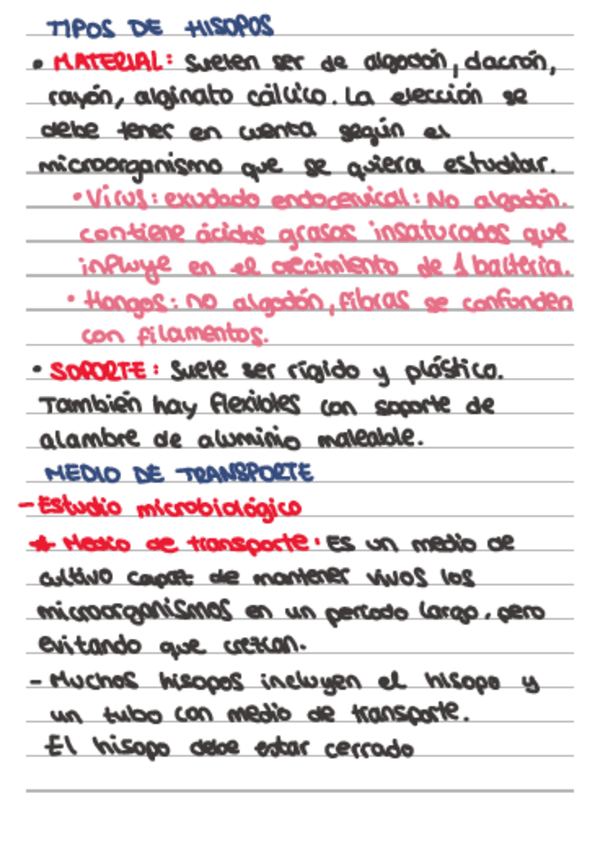 TIPOS DE HISOPOS
• MATERIAL: Suelen ser de algodón, dacrón,
rayón, alginato cálcico. La elección se
debe tener en cuenta según el
microorganismo que se quiera estudiar.
• Virus: exudado endocervical: No algodón.
contiene ácidos grasos insaturados que
influye en el crecimiento de 1 bacteria.
• Hongos: no algodón, fibras se confunden
con filamentos.
• SOPORTE: Suele ser rígido y plástico.
También hay flexibles con soporte de
alambre de aluminio maleable.
MEDIO DE TRANSPORTE
- Estudio microbiológico
* Medio de transporte: Es un medio de
cultivo capaz de mantener vivos los
microorganismos en un periodo largo, pero
evitando que crezcan.
- Muchos hisopos incluyen el hisopo y
un tubo con medio de transporte.
El hisopo debe estar cerrado